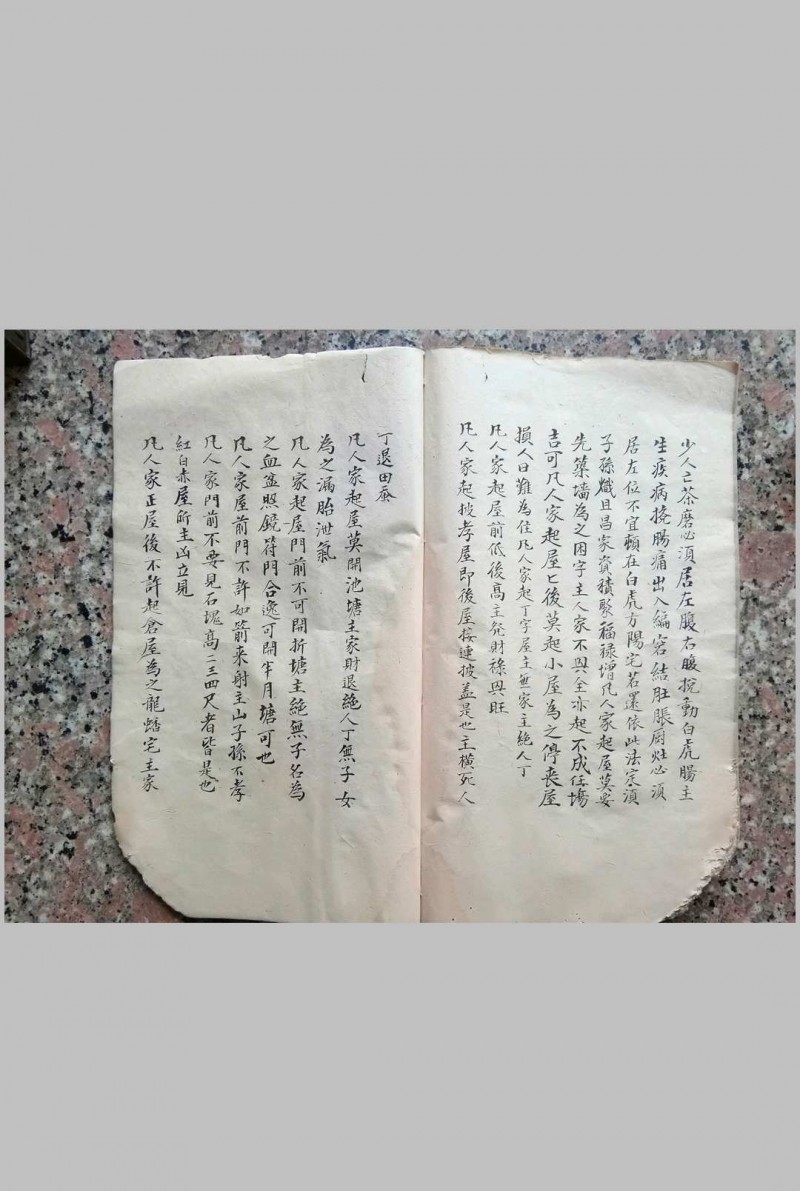 少人亡茶磨必須居左腹右腹挽動白虎腸主
生疾病挽腸痛出入編宕結肚脹廚灶必須
居左位不宜頓在白虎方陽宅若還依此法家須
子孫熾且昌家資積聚福祿增凡人家起屋莫要
先築墻為之困字主人家不興全亦起不成任場
吉可凡人家起屋匕後莫起小屋為之停喪屋
損人口難為住凡人家起丁字屋主無家主絕人丁
凡人家起屋前低後高主發財祿興旺
凡人家起披孝屋即後屋接連披盖是也主橫死人
丁退田蚕
凡人家起屋莫開池塘主家財退絕人丁無子女
為之漏胎泄氣
凡人家起屋門前不可開折塘主絕無子名為
之血盆照鏡符門合逸可開半月塘可也
凡人家屋前門不許如箭来射主山子孫不孝
凡人家門前不要見石塊高二三四尺者皆是也
紅白赤屋所主凶立見
凡人家正屋後不許起倉屋為之龍蟠宅主家